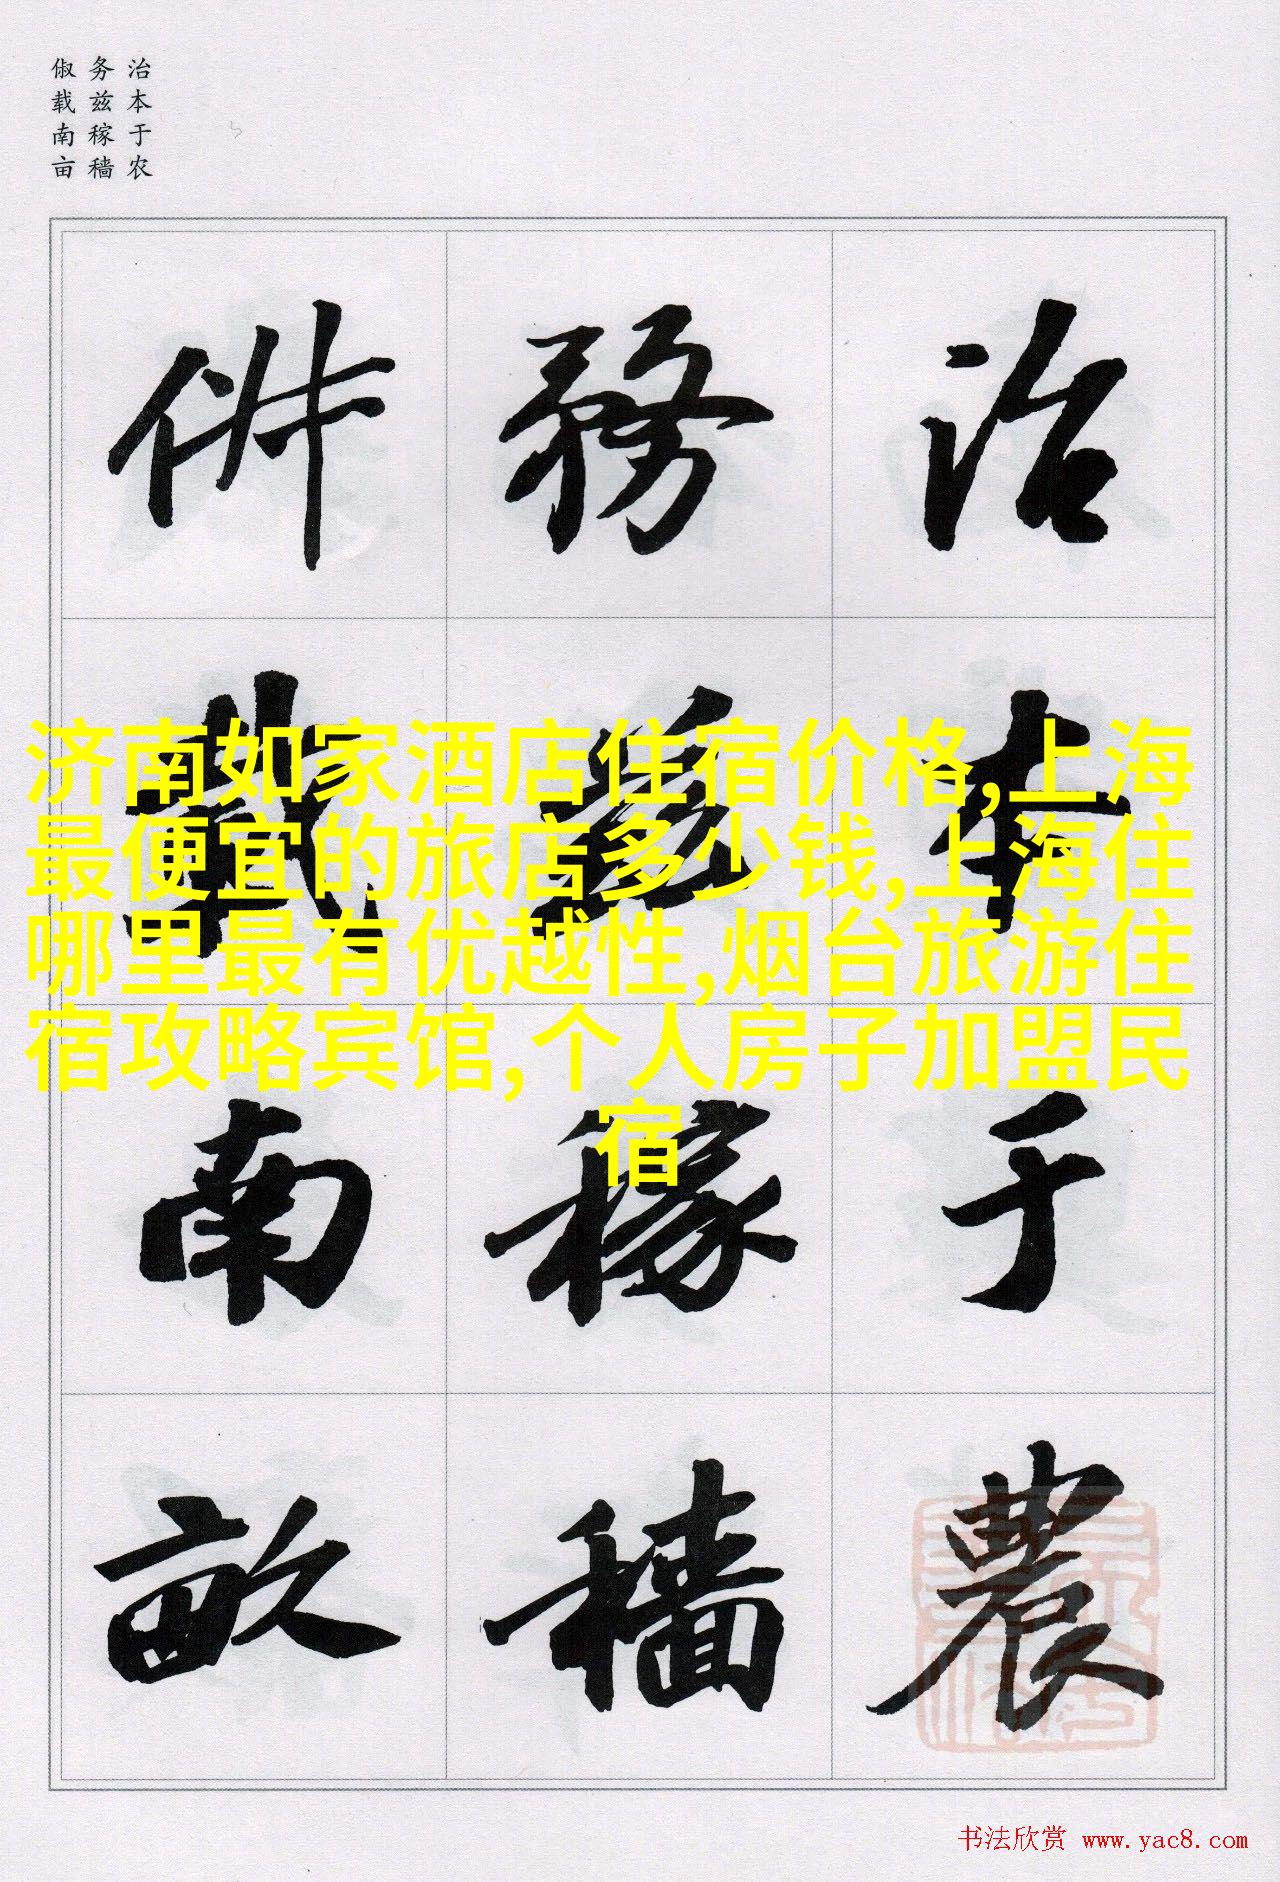 治本于农
务兹稼穑
俶载南亩
治本于農
務茲稼穡
俶載南畝
济南如家酒店住宿价格,上海
最便宜的旅店多少钱,上海住
哪里最有优越性,烟台旅游住
宿攻略宾馆,个人房子加盟民
宿
书法欣赏 www.yac8.com